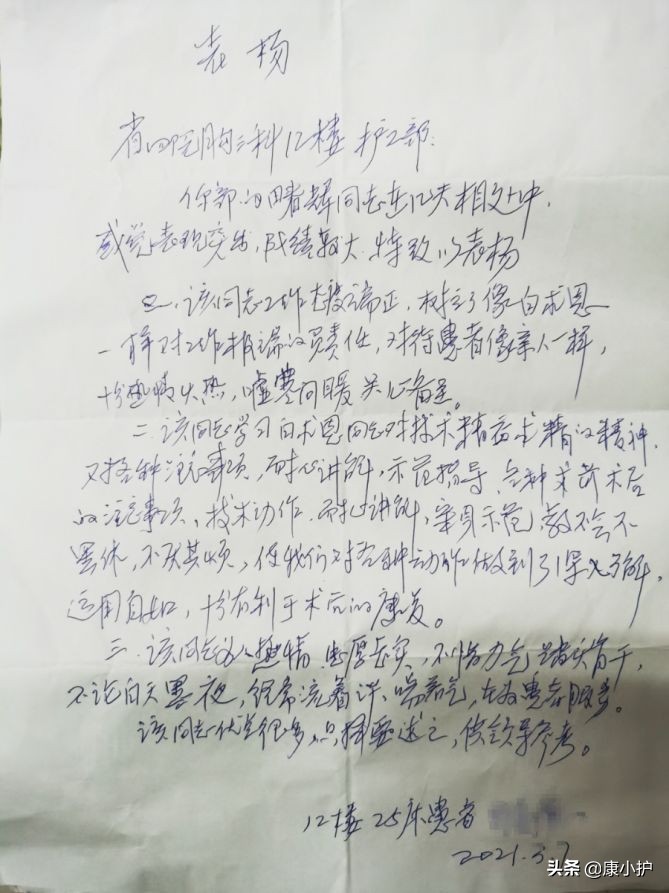 表扬
省四院胸三科12楼护士部:
你部的田春辉同志在几天相处中,
感觉表现突出,成绩较大.特致以表扬
一.该同志工作态度端正,树立了像白求恩
一样对工作极端的负责任,对待患者像亲人一样,
十分热情火热,嘘寒问暖关心备至。
二.该同志学习白求恩同志对技术精益求精的精神,
对各种注意事项,耐心讲解,示范指导,各种术前术后
的注意事项、技术动作.耐心讲解,亲身示范,教不会不
罢休,不厌其烦,使我们对各种动作做到了
运用自如,十分有利于术后的康复。
三.该同志为人热情.忠厚老实,不惜力气踏实肯干,
不论白天黑夜,经常流着汗、喘着气,在为患者服务。
该同志优点很多,只择要述之,供领导参考。
12楼25床患者
2021.3.7
头条 @康小护